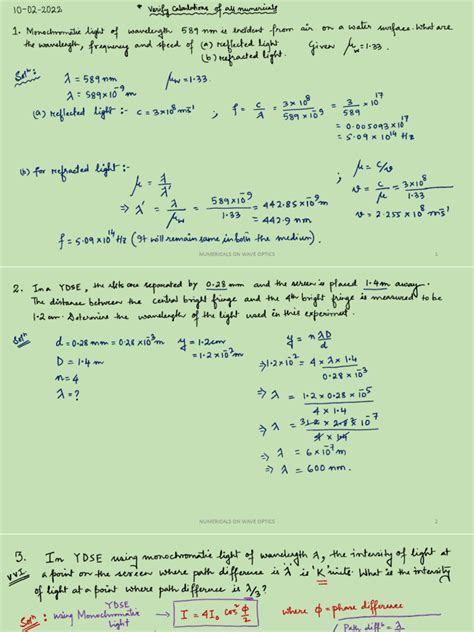 10-02-2022
* Verify Calculations of all numericals
1. Monochromatic light of wavelength 589 nm is incident from air on a water surface. What are
the wavelength, frequency and speed of (a) reflected light Given μw = 1.33.
(b) refracted light.
Solⁿ:
λ = 589 nm μw = 1.33.
λ = 589×10⁻⁹ m
(a) reflected light :- c = 3×10⁸ ms⁻¹ ; f = c/λ = 3×10⁸/589×10⁻⁹ = 3/589 ×10¹⁷
= 0.005093×10¹⁷
= 5.09×10¹⁴ Hz
(b) for refracted light :-
μ = λ/λ' ; μ = c/v
⇒ λ' = λ/μw = 589×10⁻⁹/1.33 = 442.85×10⁻⁹ m v = c/μ = 3×10⁸/1.33
= 442.9 nm v = 2.255×10⁸ ms⁻¹
f = 5.09×10¹⁴ Hz (It will remain same in both the medium).
NUMERICALS ON WAVE OPTICS 1
2. In a YDSE, the slits are separated by 0.28 mm and the screen is placed 1.4m away.
The distance between the central bright fringe and the 4th bright fringe is measured to be
1.2 cm. Determine the wavelength of the light used in this experiment.
Solⁿ
d = 0.28 mm = 0.28×10⁻³ m y = 1.2cm y = n λD/d
D = 1.4m = 1.2×10⁻² m ⇒ 1.2×10⁻² = 4 × λ × 1.4/0.28×10⁻³
n = 4
λ = ? ⇒ λ = 1.2×0.28×10⁻⁵/4×1.4
⇒ λ =
⇒ λ = 6×10⁻⁷ m
⇒ λ = 600 nm.
NUMERICALS ON WAVE OPTICS 2
3. In YDSE using monochromatic light of wavelength λ, the intensity of light at
VVI. a point on the screen where path difference is 'λ' is 'K' units. What is the intensity
of light at a point where path difference is λ/3?
Solⁿ: using YDSE Monochromatic Light → I = 4I₀ cos² φ/2 where φ = phase difference
(Path diffⁿ = λ